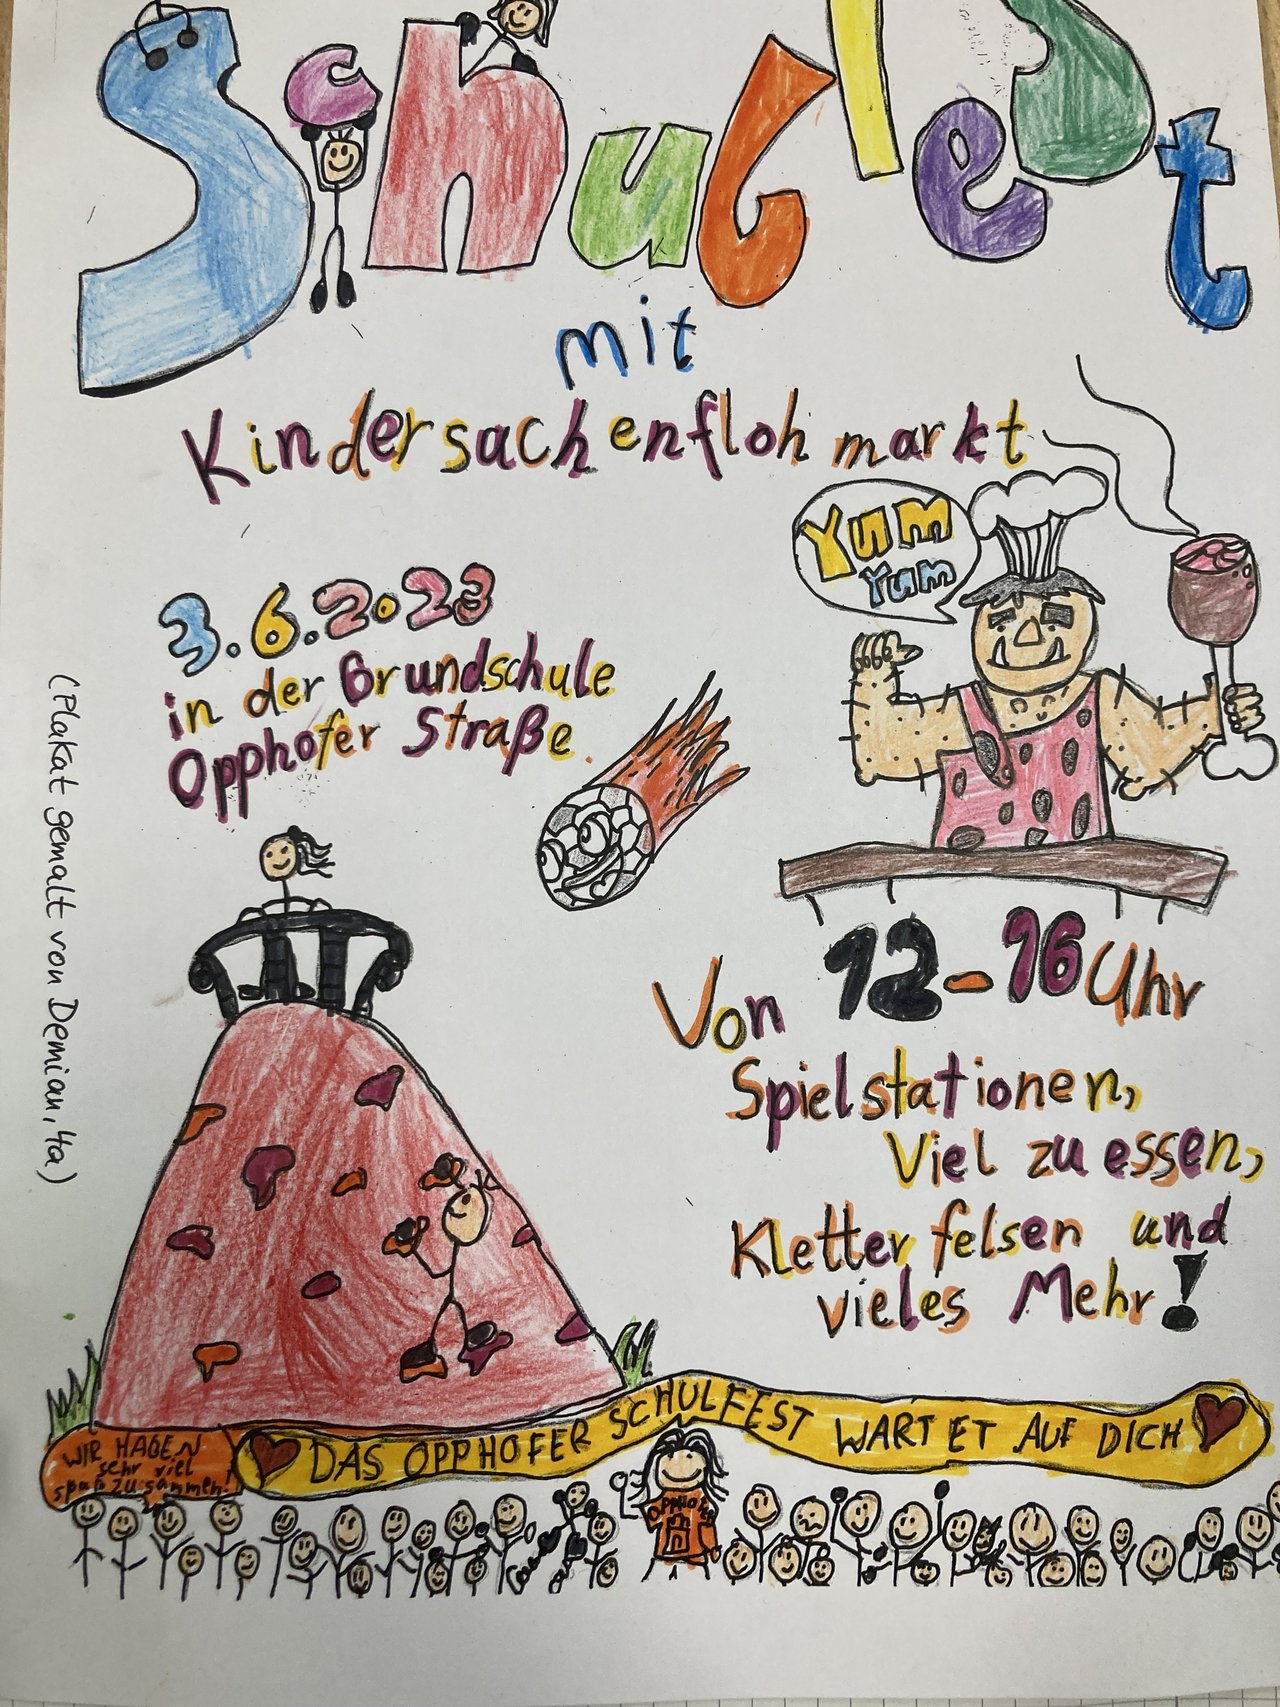 Schulfest
mit
Kindersachenflohmarkt
Yum
Yum
3.6.2023
in der Grundschule
Opphofer Straße
(Plakat gemalt von Demian, 4a)
Von 12-16 Uhr
Spielstationen,
Viel zu essen,
Kletterfelsen und
vieles Mehr!
WIR HABEN
sehr viel
spaß zusammen!
DAS OPPHOFER SCHULFEST WARTET AUF DICH
OPPHOFER